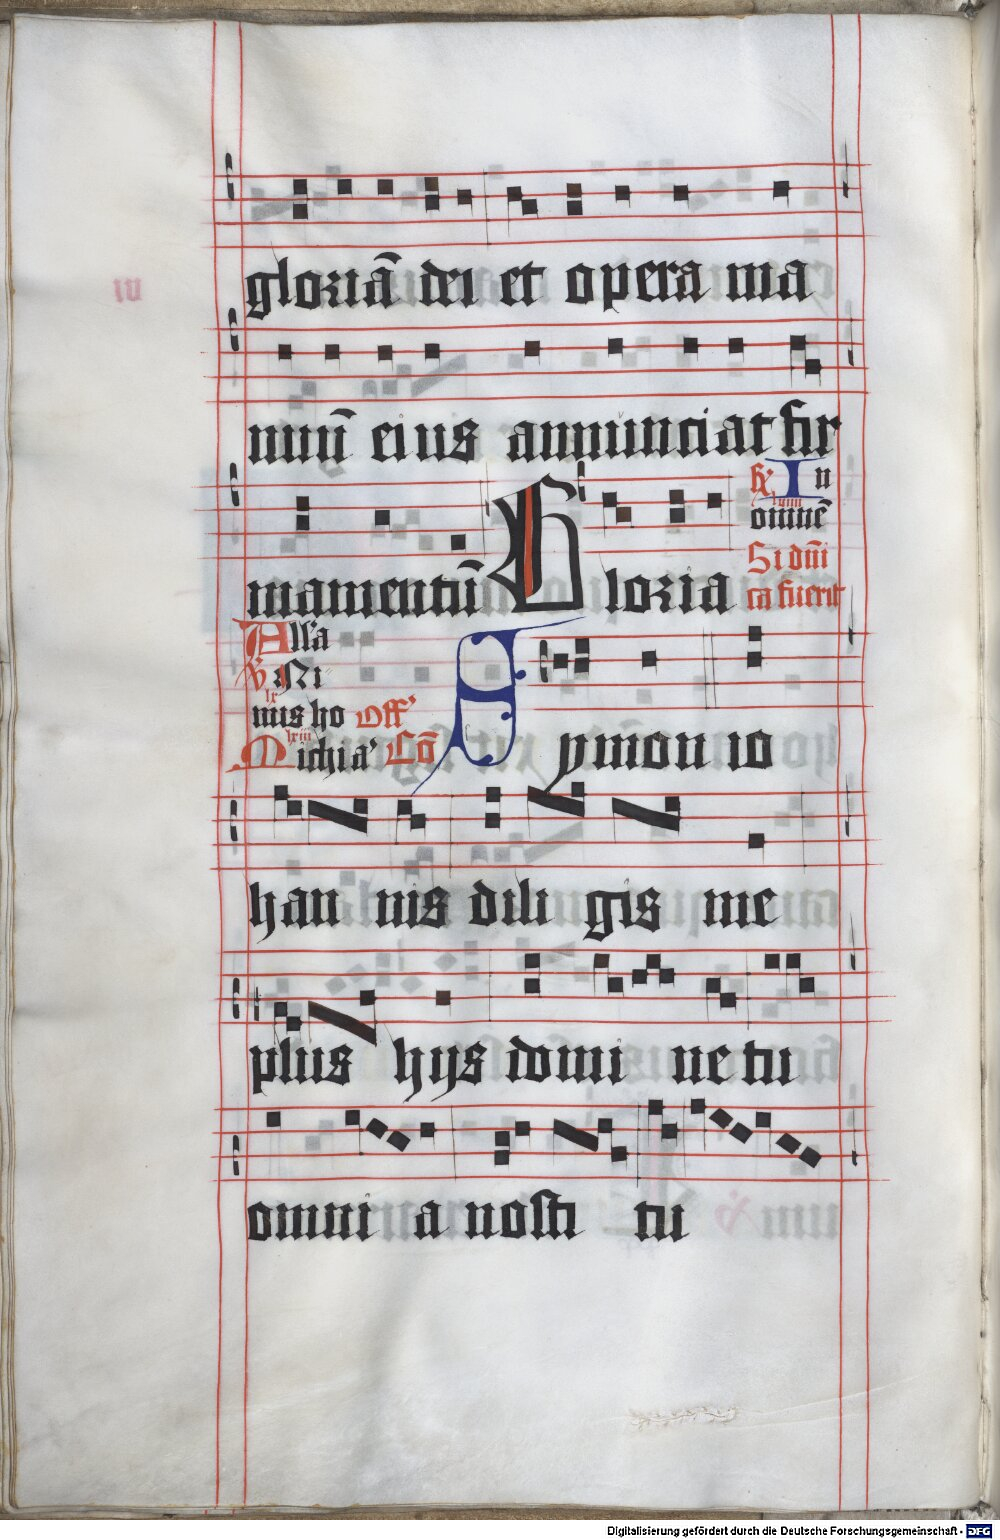 gloriā dei et opera ma
nuū eius annunciat fir
mamentū Gloria
In
omnē
Si dūi
ca fuerit
Alla
Ni
mis ho Off'
Michia' Cō
Symon io
han nis dili gis me
plus hijs domi ne tu
omni a nosti tu
Digitalisierung gefördert durch die Deutsche Forschungsgemeinschaft - DFG